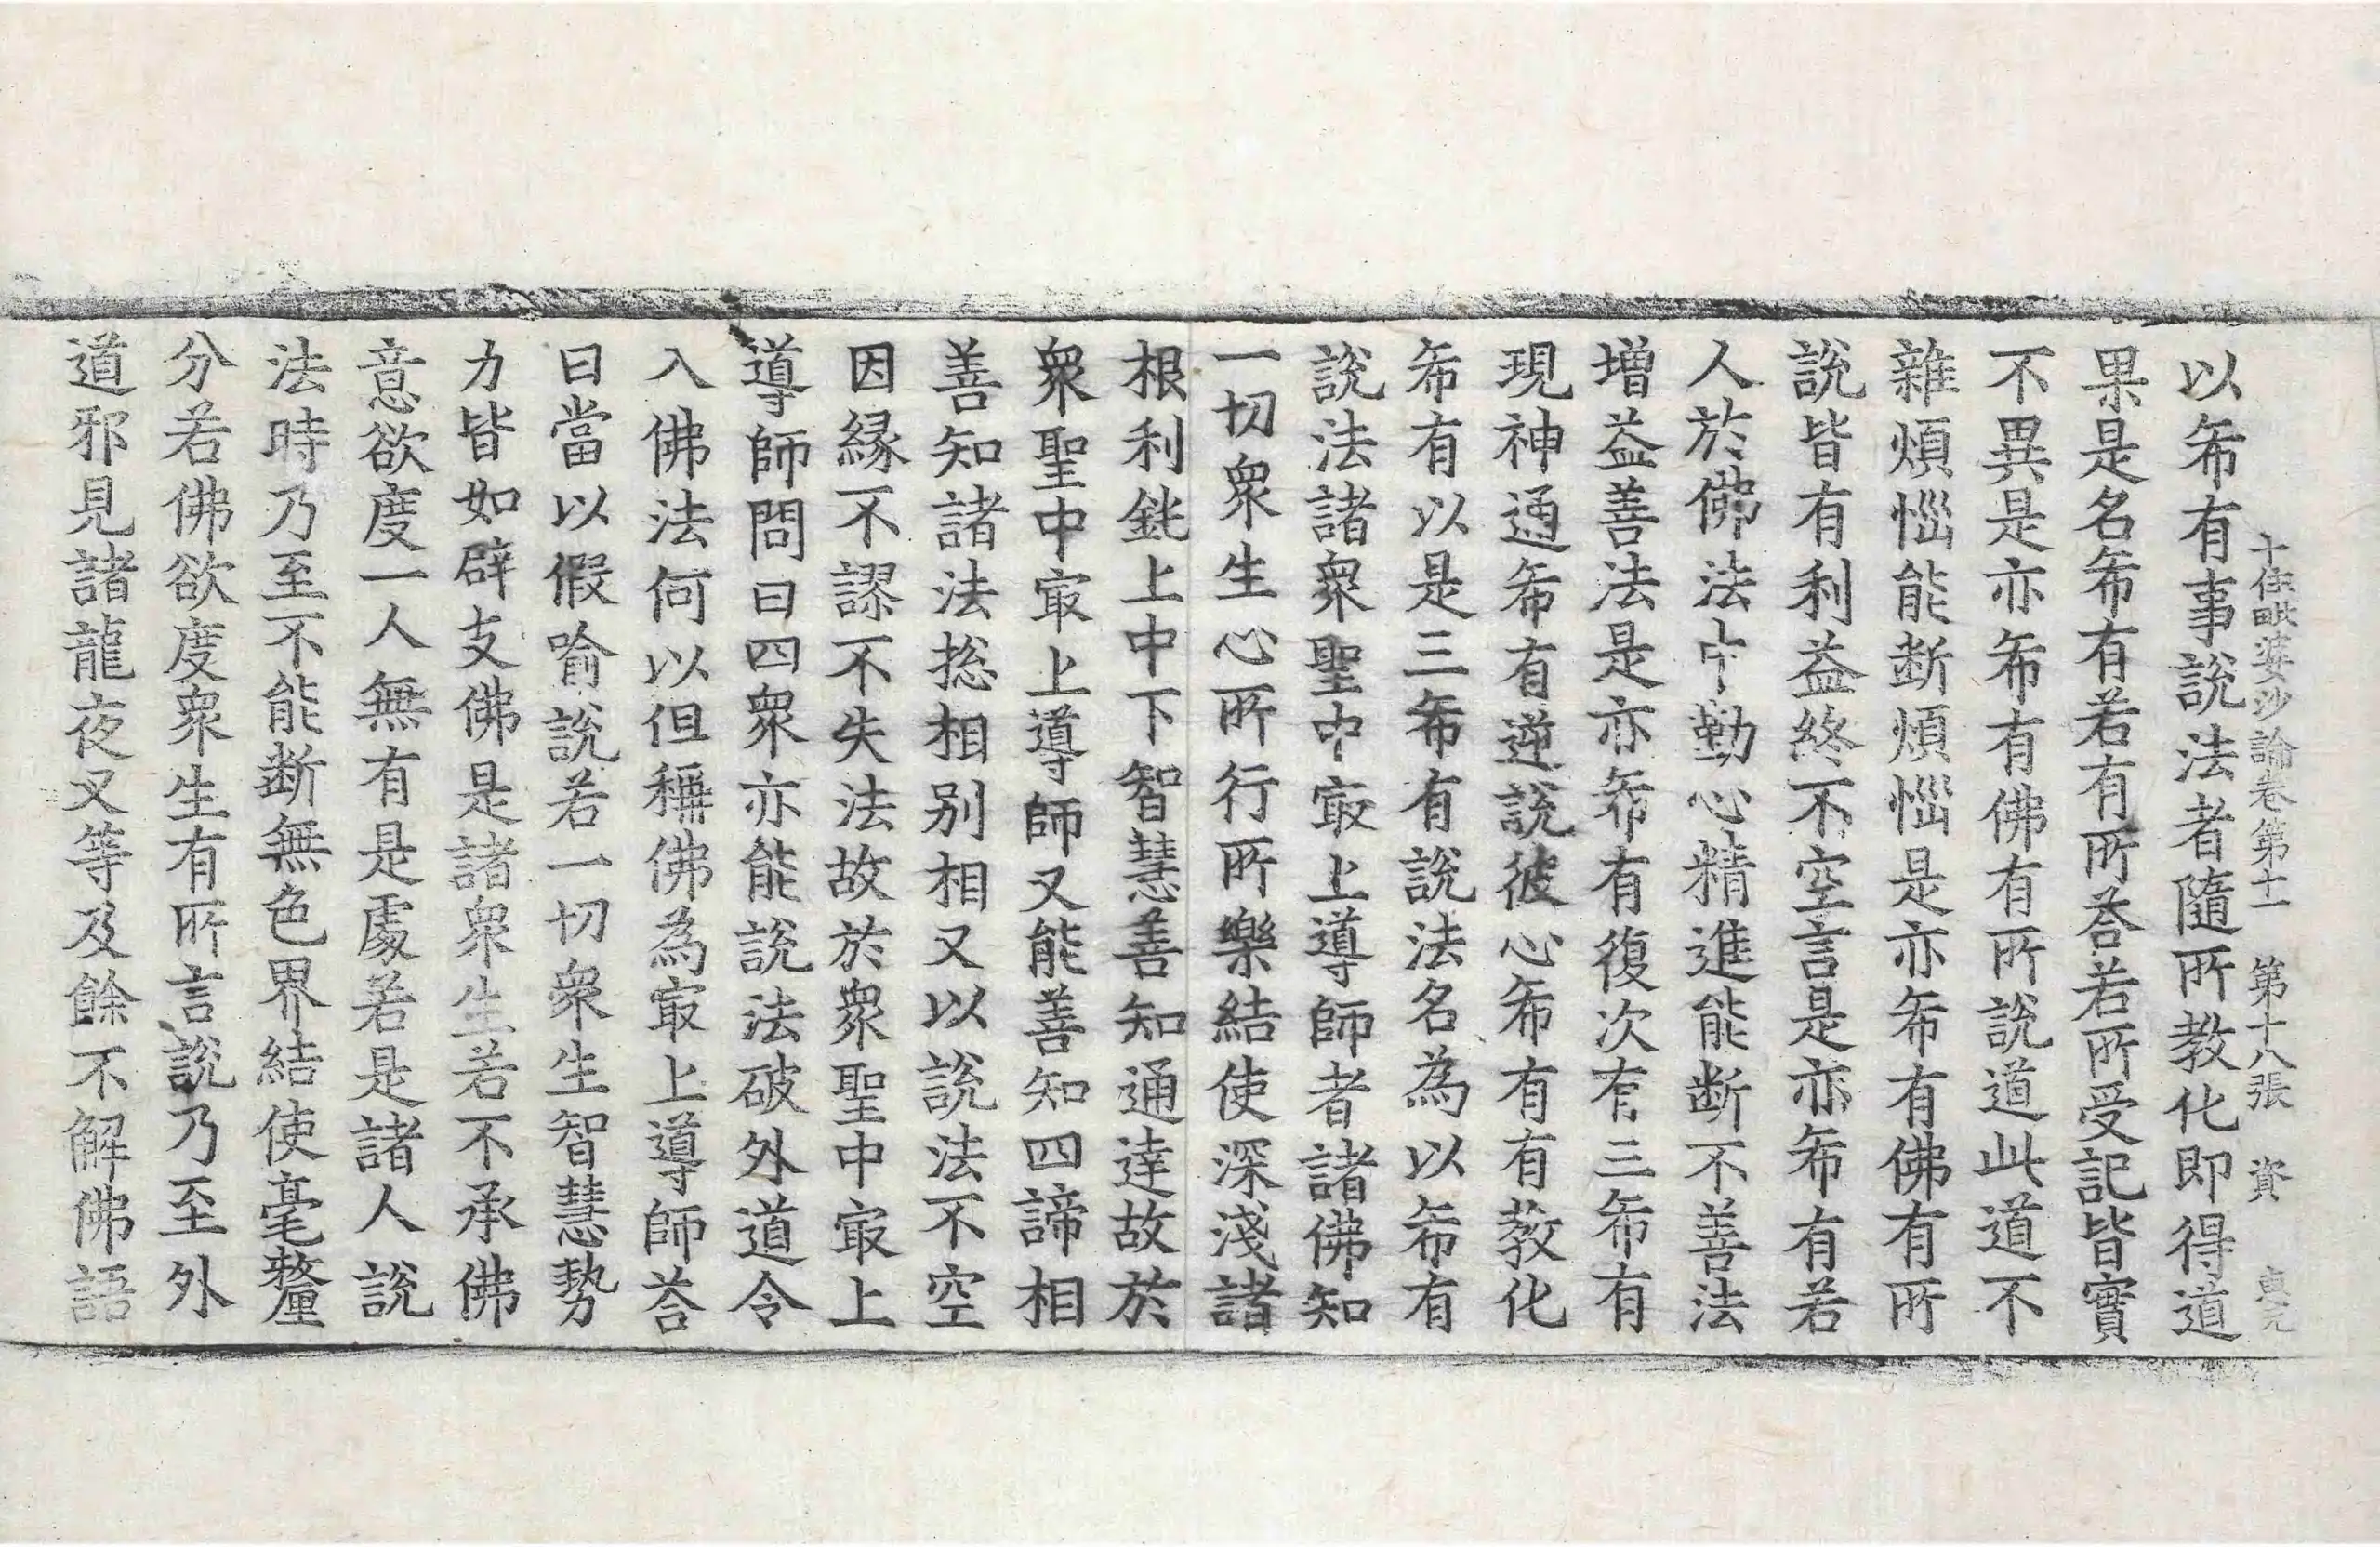 十住毗婆沙論卷第十一 第十八張 資
以希有事說法者隨所教化即得道
果是名希有若有所荅若所受記皆實
不異是亦希有佛有所說道此道不
雜煩惱能断煩惱是亦希有佛有所
說皆有利益終不空言是亦希有若
人於佛法中勤心精進能断不善法
增益善法是亦希有復次有三希有
現神通希有逆說彼心希有有教化
希有以是三希有說法名為以希有
說法諸衆聖中㝡上導師者諸佛知
一切衆生心所行所樂結使深淺諸
根利鈍上中下智慧善知通達故於
衆聖中㝡上導師又能善知四諦相
善知諸法揔相别相又以說法不空
因緣不謬不失法故於衆聖中㝡上
導師問曰四衆亦能說法破外道令
入佛法何以但稱佛為㝡上導師荅
曰當以假喻說若一切衆生智慧勢
力皆如辟支佛是諸衆生若不承佛
意欲度一人無有是處若是諸人說
法時乃至不能断無色界結使毫釐
分若佛欲度衆生有所言說乃至外
道邪見諸龍夜叉等及餘不解佛語